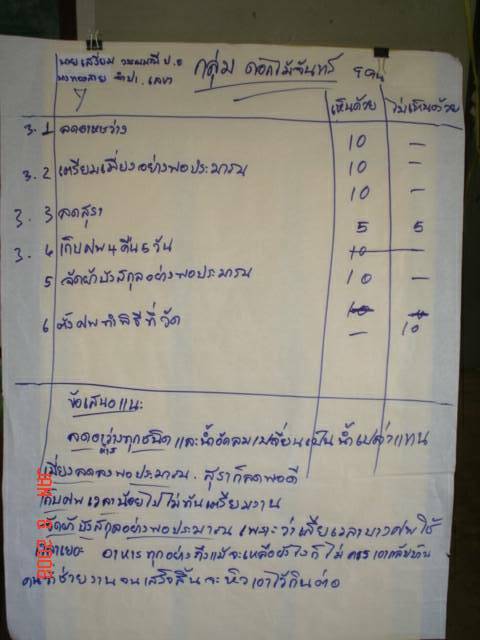 นายเสรียม ป.ธ
กลุ่ม ดอกไม้จันทร์
เห็นด้วย ไม่เห็นด้วย
3.1 ลดอาหารว่าง 10 —
3.2 เตรียมเมี่ยงอย่างพอประมาณ 10 —
10 —
3.3 ลดสุรา 5 5
3.4 เก็บศพ 4 คืน 5 วัน 10 —
5 จัดผ้าบังสกุลอย่างพอประมาณ 10 —
6 ตั้งศพทำพิธีที่วัด — 10
ข้อเสนอแนะ
ลดอาหารว่างทุกชนิด และน้ำอัดลมเปลี่ยนเป็นน้ำเปล่าแทน
เมี่ยงลดลงพอประมาณ. สุราก็ลดพอดี
เก็บศพเวลาน้อยไปไม่ทันเตรียมงาน
จัดผ้าบังสกุลอย่างพอประมาณ เพราะว่าเสียเวลาบางศพใช้
เวลาเยอะ อาหารทุกอย่างถึงแม้จะเหลืออะไรก็ไม่ควรเอากลับบ้าน
คนที่ช่วยงานจนเสร็จสิ้นจะหิวเอาไว้กินต่อ
JAN 6 2008